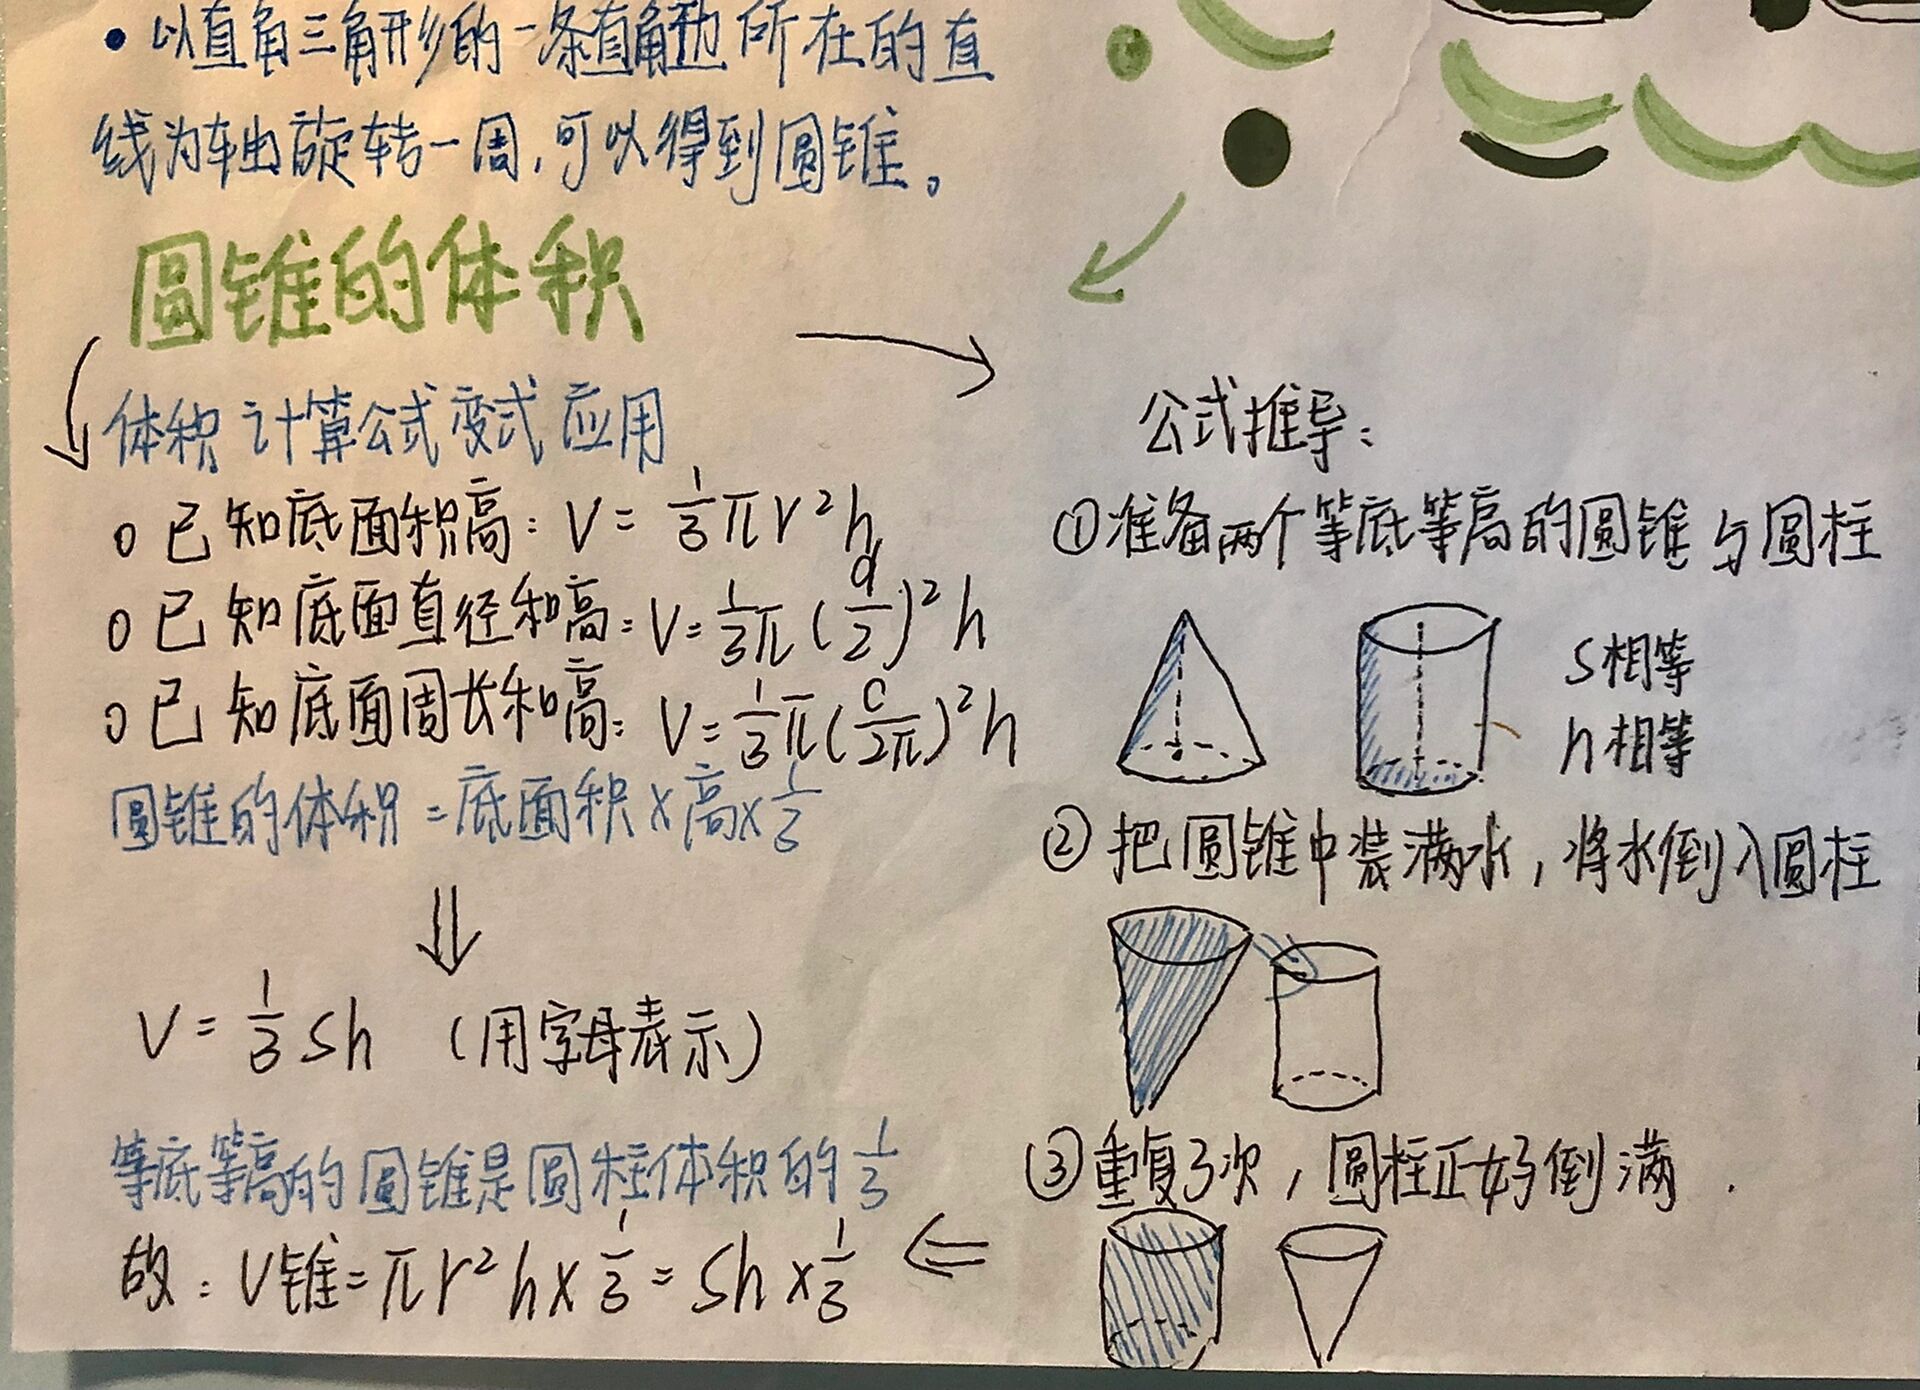 •以直角三角形的一条直角边所在的直
线为轴旋转一周,可以得到圆锥。
圆锥的体积
体积计算公式变式应用
o已知底面积高:V=1/3πr²h
o已知底面直径和高:V=1/3π(d/2)²h
o已知底面周长和高:V=1/3π(C/2π)²h
圆锥的体积=底面积×高×1/3
⇓
V=1/3Sh (用字母表示)
等底等高的圆锥是圆柱体积的1/3
故:V锥=πr²h×1/3=Sh×1/3
公式推导:
①准备两个等底等高的圆锥与圆柱
S相等
h相等
②把圆锥中装满水,将水倒入圆柱
③重复3次,圆柱正好倒满.